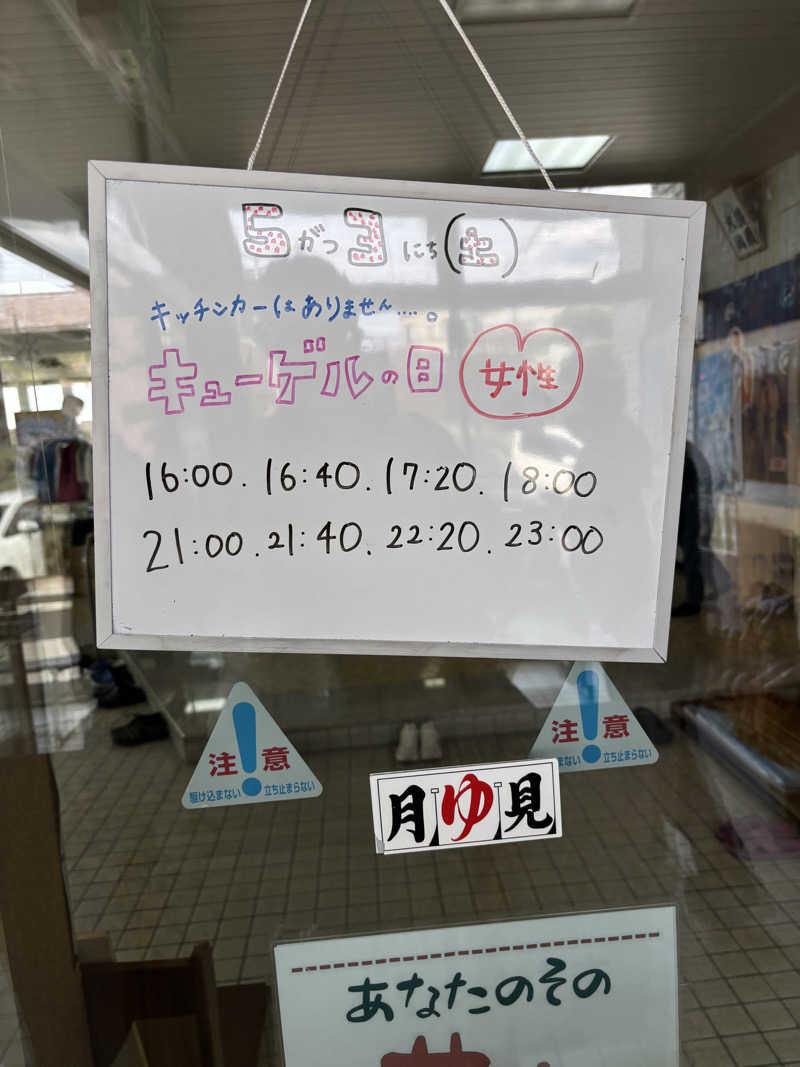 5がつ3にち(土)
キッチンカーはありません....。
キューゲルの日 女性
16:00. 16:40. 17:20. 18:00
21:00. 21:40. 22:20. 23:00
注!意
駆け込まない 立ち止まらない
注!意
まない 立ち止まらない
月ゆ見
あなたのその